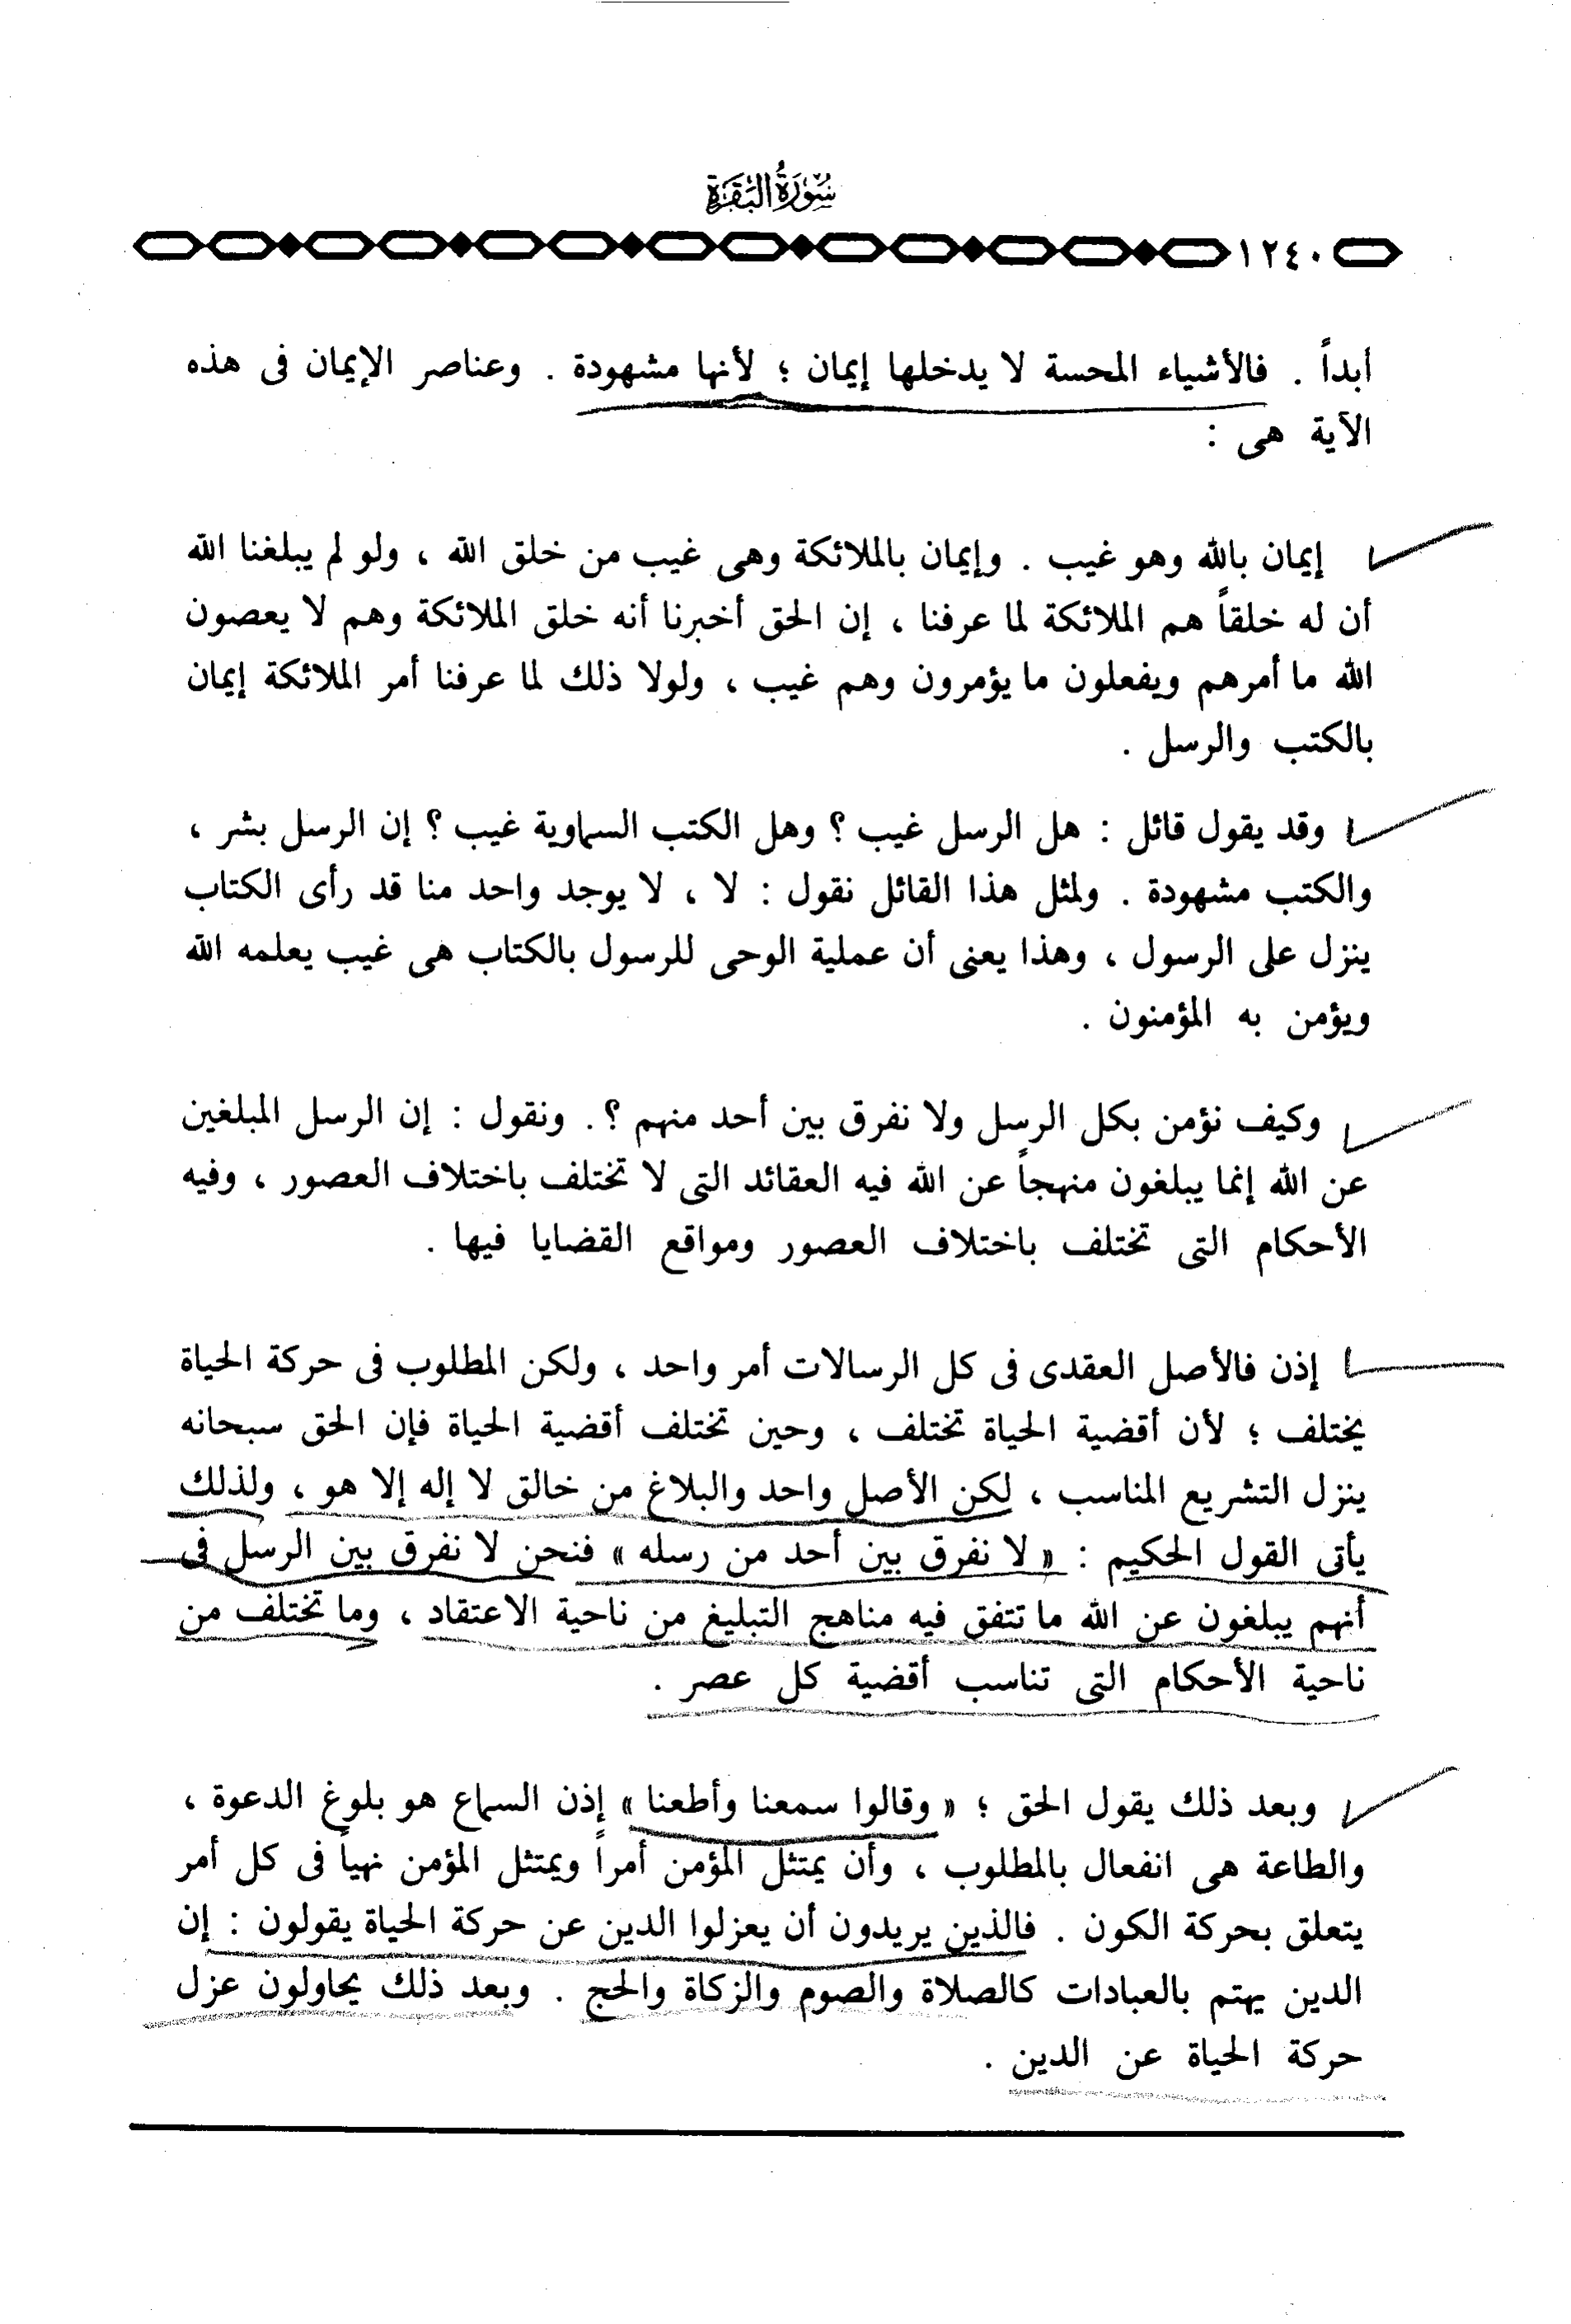 سُورَةُ البَقَرَةِ
١٢٤٠
أبداً . فالأشياء المحسة لا يدخلها إيمان ؛ لأنها مشهودة . وعناصر الإيمان فى هذه
الآية هى :
إيمان بالله وهو غيب . وإيمان بالملائكة وهى غيب من خلق الله ، ولو لم يبلغنا الله
أن له خلقاً هم الملائكة لما عرفنا ، إن الحق أخبرنا أنه خلق الملائكة وهم لا يعصون
الله ما أمرهم ويفعلون ما يؤمرون وهم غيب ، ولولا ذلك لما عرفنا أمر الملائكة إيمان
بالكتب والرسل .
وقد يقول قائل : هل الرسل غيب ؟ وهل الكتب السماوية غيب ؟ إن الرسل بشر ،
والكتب مشهودة . ولمثل هذا القائل نقول : لا ، لا يوجد واحد منا قد رأى الكتاب
ينزل على الرسول ، وهذا يعنى أن عملية الوحى للرسول بالكتاب هى غيب يعلمه الله
ويؤمن به المؤمنون .
وكيف نؤمن بكل الرسل ولا نفرق بين أحد منهم ؟. ونقول : إن الرسل المبلغين
عن الله إنما يبلغون منهجاً عن الله فيه العقائد التى لا تختلف باختلاف العصور ، وفيه
الأحكام التى تختلف باختلاف العصور ومواقع القضايا فيها .
إذن فالأصل العقدى فى كل الرسالات أمر واحد ، ولكن المطلوب فى حركة الحياة
يختلف ؛ لأن أقضية الحياة تختلف ، وحين تختلف أقضية الحياة فإن الحق سبحانه
ينزل التشريع المناسب ، لكن الأصل واحد والبلاغ من خالق لا إله إلا هو ، ولذلك
يأتى القول الحكيم : « لا نفرق بين أحد من رسله » فنحن لا نفرق بين الرسل فى
أنهم يبلغون عن الله ما تتفق فيه مناهج التبليغ من ناحية الاعتقاد ، وما تختلف من
ناحية الأحكام التى تناسب أقضية كل عصر .
وبعد ذلك يقول الحق ؛ « وقالوا سمعنا وأطعنا » إذن السماع هو بلوغ الدعوة ،
والطاعة هى انفعال بالمطلوب ، وأن يمتثل المؤمن أمراً ويمتثل المؤمن نهياً فى كل أمر
يتعلق بحركة الكون . فالذين يريدون أن يعزلوا الدين عن حركة الحياة يقولون : إن
الدين يهتم بالعبادات كالصلاة والصوم والزكاة والحج . وبعد ذلك يحاولون عزل
حركة الحياة عن الدين .